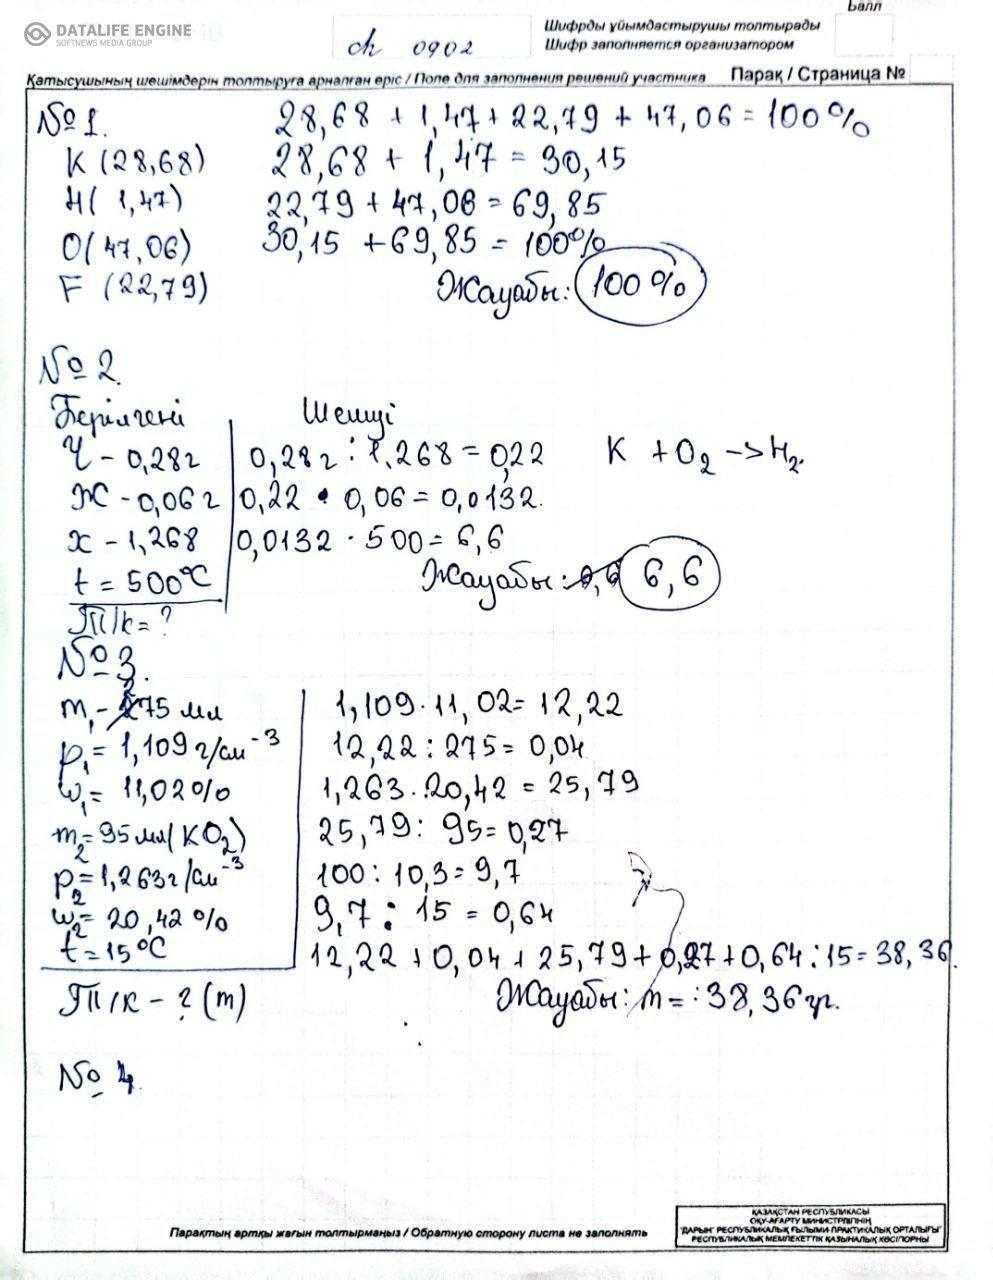 DATALIFE ENGINE
SOFTNEWS MEDIA GROUP
ch 0902
Балл
Шифрды ұйымдастырушы толтырады
Шифр заполняется организатором
Қатысушының шешімдерін толтыруға арналған өріс / Поле для заполнения решений участника
Парақ / Страница №
№ 1.
28,68 + 1,47 + 22,79 + 47,06 = 100 %
K (28,68)
28,68 + 1,47 = 30,15
H( 1,47)
22,79 + 47,06 = 69,85
O( 47,06)
30,15 + 69,85 = 100%
F (22,79)
Жауабы: 100 %
№ 2.
Берілгені
Шешуі
Ч - 0,28г
0,28г : 1.268 = 0,22
K + O₂ -> H₂.
Ж - 0,06 г
0,22 · 0,06 = 0,0132.
x - 1,268
0,0132 · 500 = 6,6
t = 500°C
Жауабы: 6,6
Т/к = ?
№ 3.
m₁ - 275 мл
1,109 · 11,02 = 12,22
p₁ = 1,109 г/см⁻³
12,22 : 275 = 0,04
w₁ = 11,02%
1,263 · 20,42 = 25,79
m₂ = 95 мл( KO₂)
25,79 : 95 = 0,27
p₂ = 1,263г/см⁻³
100 : 10,3 = 9,7
w₂ = 20,42 %
9,7 : 15 = 0,64
t = 15°C
12,22 + 0,04 + 25,79 + 0,27 + 0,64 : 15 = 38,36.
Т/к - ? (m)
Жауабы: m = : 38,36 гр.
№ 4.
Парақтың артқы жағын толтырмаңыз / Обратную сторону листа не заполнять
ҚАЗАҚСТАН РЕСПУБЛИКАСЫ
ОҚУ-АҒАРТУ МИНИСТРЛІГІНІҢ
"ДАРЫН" РЕСПУБЛИКАЛЫҚ ҒЫЛЫМИ-ПРАКТИКАЛЫҚ ОРТАЛЫҒЫ"
РЕСПУБЛИКАЛЫҚ МЕМЛЕКЕТТІК ҚАЗЫНАЛЫҚ КӘСІПОРНЫ